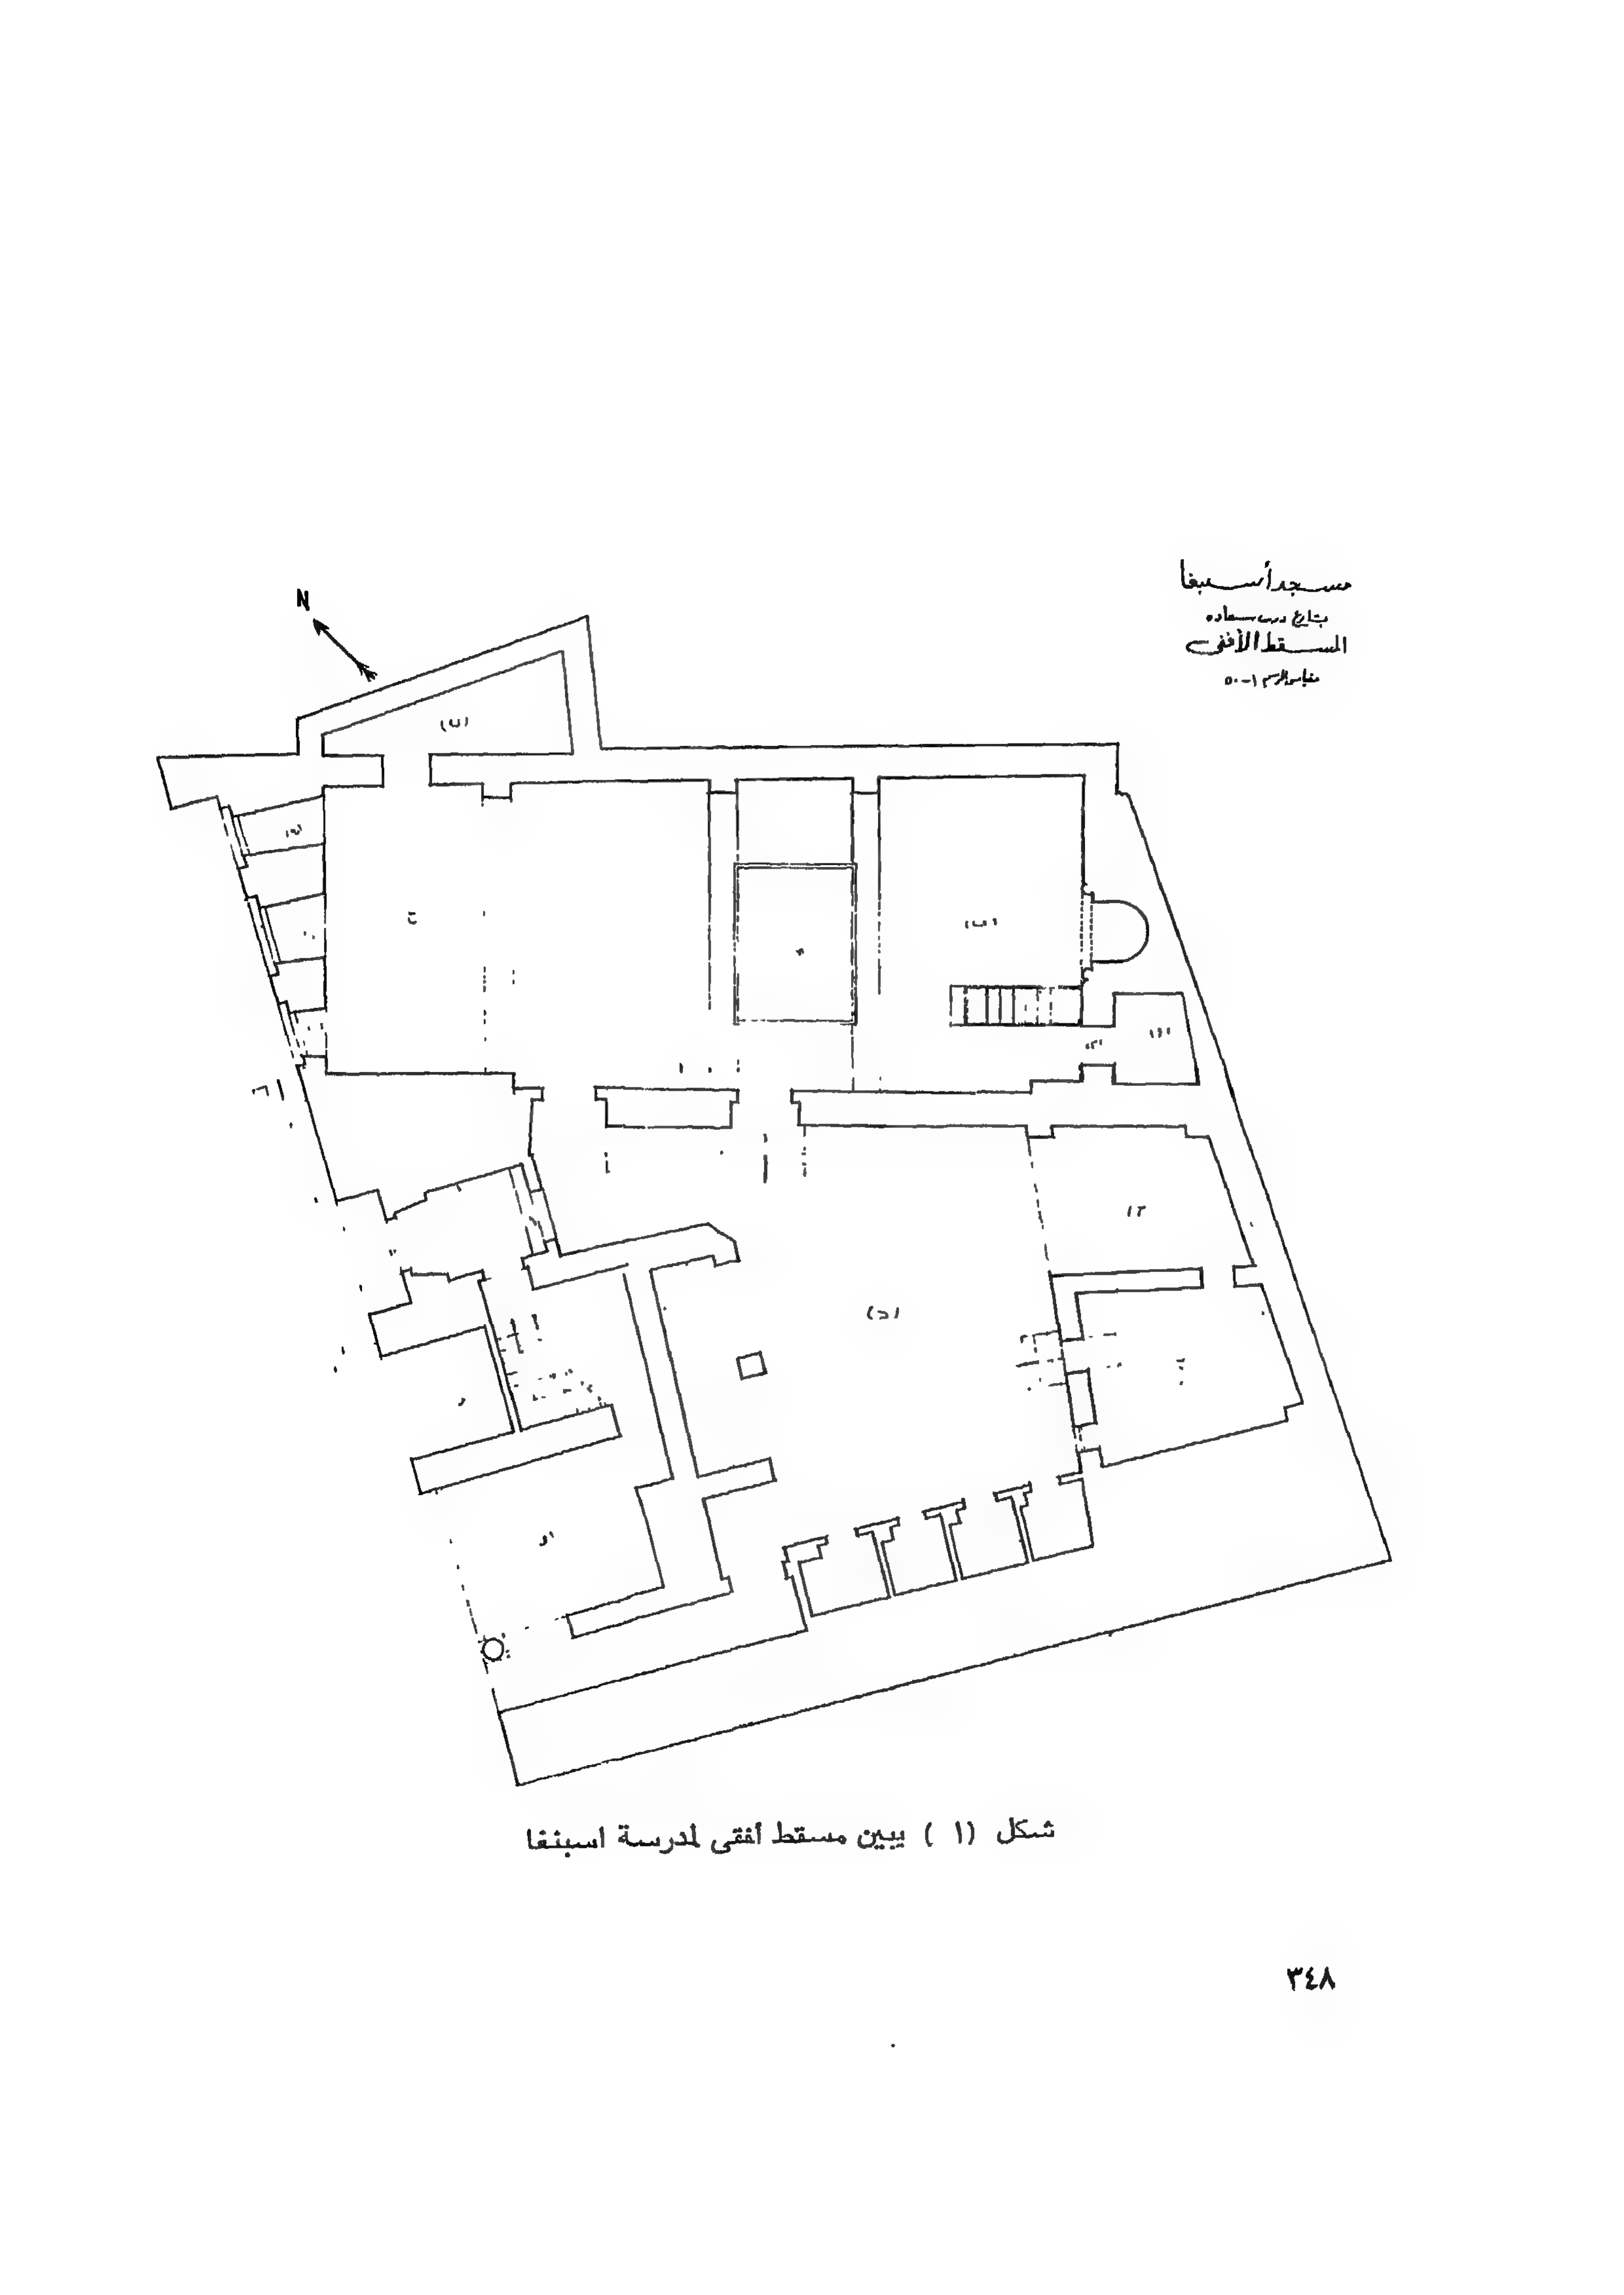 مسجد أسنبغا
بشارع درب سعاده
المسقط الأفقى
مقياس الرسم ١-٥٠
N
(ب)
ج
(د)
١٢
شكل (١) يبين مسقط أفقى لمدرسة اسبنغا
٣٤٨